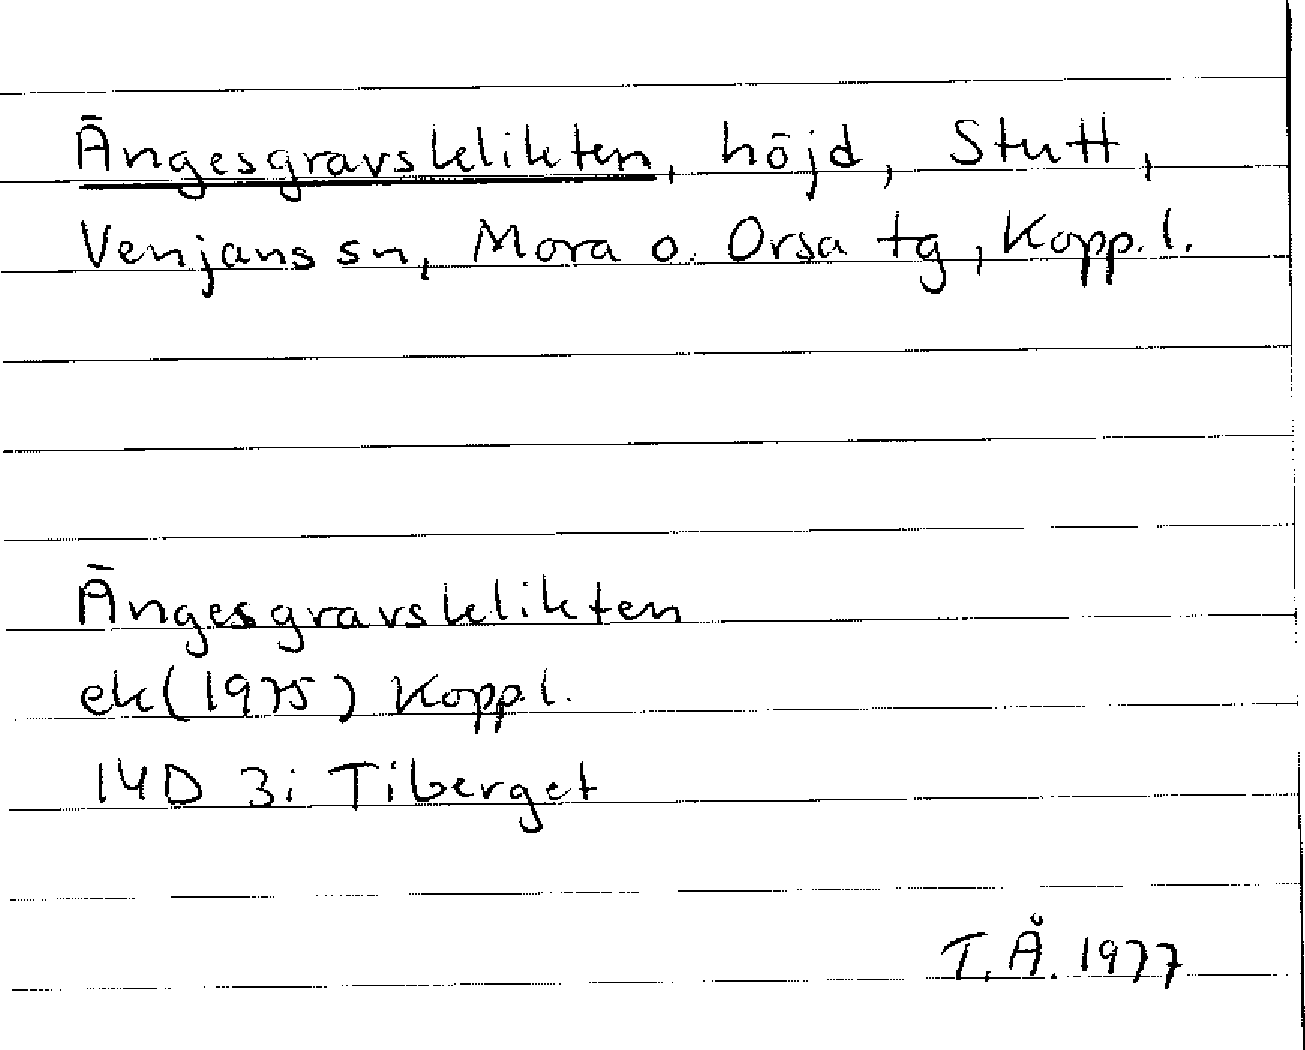 Ängesgravsklikten, höjd, Stutt,
Venjans sn, Mora o. Orsa tg, Kopp. l.
Ängesgravsklikten
ek (1975) Kopp. l.
14D 3i Tiberget
T. Å. 1977